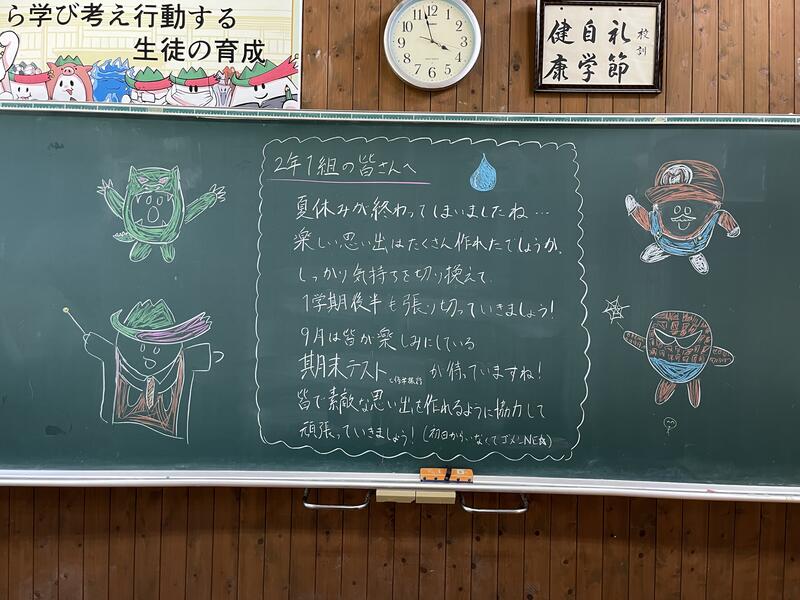 ら学び考え行動する
生徒の育成
12
1
2
3
4
5
6
7
8
9
10
11
校訓
礼節
自学
健康
2年1組の皆さんへ
夏休みが終わってしまいましたね…
楽しい思い出はたくさん作れたでしょうか。
しっかり気持ちを切り換えて
1学期後半も張り切っていきましょう!
9月は皆が楽しみにしている
期末テスト と修学旅行 が待っていますね!
皆で素敵な思い出を作れるように協力して
頑張っていきましょう!(初日からいなくてゴメンNE